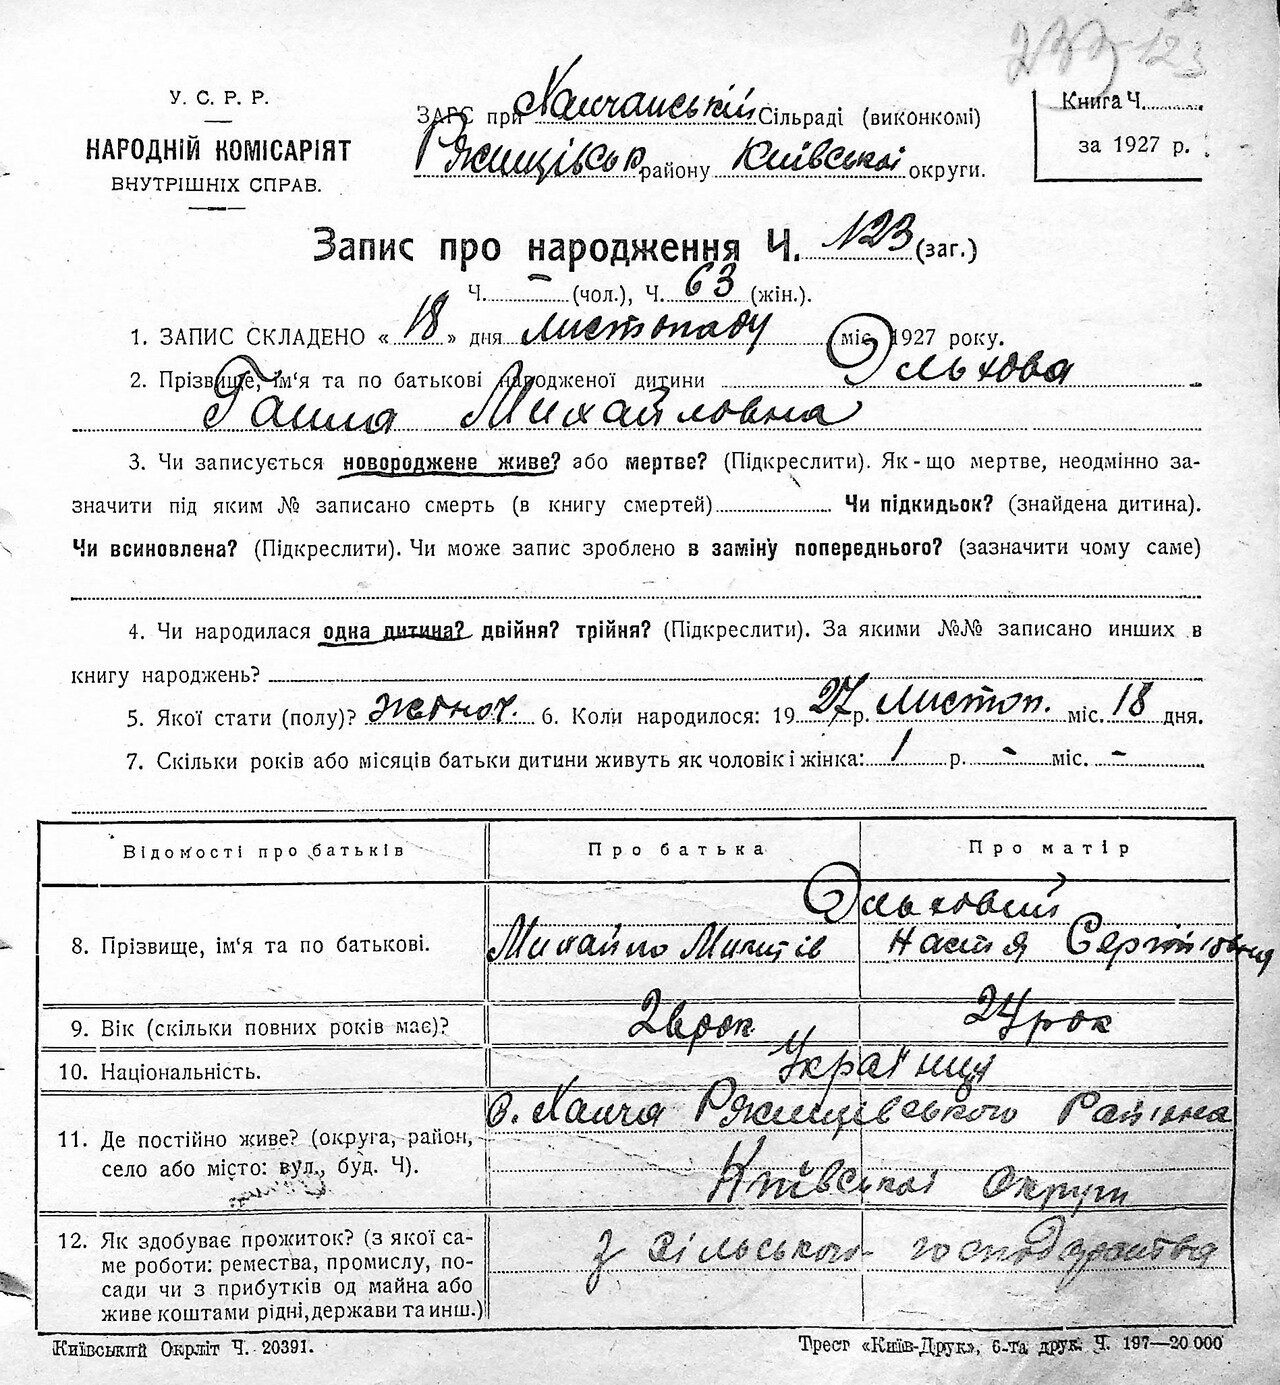 123
У. С. Р. Р.
НАРОДНІЙ КОМІСАРІЯТ
ВНУТРІШНІХ СПРАВ.
ЗАГС при Ханчанській Сільраді (виконкомі)
Ржищівськ. району Київської округи.
Книга Ч.
за 1927 р.
Запис про народження Ч. 123 (заг.)
Ч. – (чол.), Ч. 63 (жін.).
1. ЗАПИС СКЛАДЕНО « 18 » дня листопаду міс. 1927 року.
2. Прізвище, ім‘я та по батькові народженої дитини Эльхова
Ганна Михайловна
3. Чи записується новороджене живе? або мертве? (Підкреслити). Як-що мертве, неодмінно за-
значити під яким № записано смерть (в книгу смертей) Чи підкидьок? (знайдена дитина).
Чи всиновлена? (Підкреслити). Чи може запис зроблено в заміну попереднього? (зазначити чому саме)
4. Чи народилася одна дитина? двійня? трійня? (Підкреслити). За якими №№ записано инших в
книгу народжень?
5. Якої стати (полу)? жіноч. 6. Коли народилося: 1927 р. Листоп. міс. 18 дня.
7. Скільки років або місяців батьки дитини живуть як чоловік і жінка: 1 р. – міс. –
Відомості про батьків Про батька Про матір
Эльховий
8. Прізвище, ім‘я та по батькові. Михайло Настя
9. Вік (скільки повних років має)? рок 24 рок
10. Національність. Українці
11. Де постійно живе? (округа, район, с. Ханча Ржищівського Району
село або місто: вул., буд. Ч). Київської Округи
12. Як здобуває прожиток? (з якої са- з сільського господарства
ме роботи: ремества, промислу, по-
сади чи з прибутків од майна або
живе коштами рідні, держави та инш.)
Київський Окрліт Ч. 20391. Трест «Київ-Друк», 6-та друк. Ч. 197—20 000